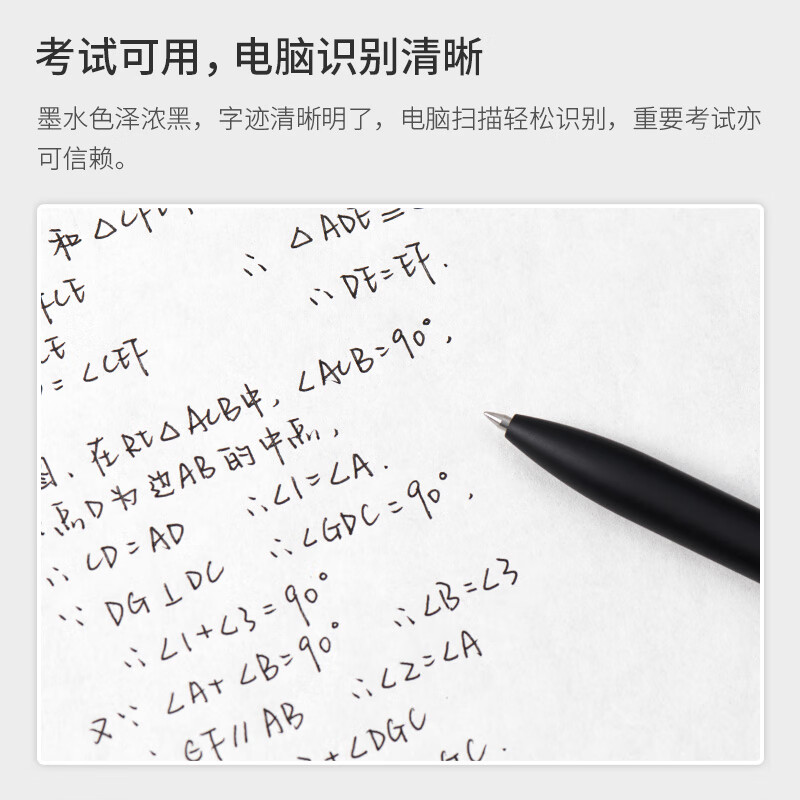 考试可用，电脑识别清晰
墨水色泽浓黑，字迹清晰明了，电脑扫描轻松识别，重要考试亦
可信赖。
和 △CFE,
∴ △ADE ≌
FCE
∴ DE=EF.
CE
= ∠CEF
图、在Rt△ACB中, ∠ACB=90°,
点D为边AB的中点,
∴ CD=AD
∴∠1=∠A.
∵ DG⊥DC
∴∠GDC=90°,
∴∠1+∠3=90°
又∵ ∠A+∠B=90°
∴∠B=∠3
∵ EF//AB
∴∠2=∠A
+∠DGC
GC.